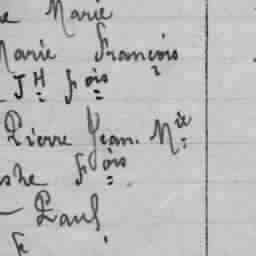 e Marie
Marie François
J H Fois
Pierre Jean. Mie
she Fois
– Paul